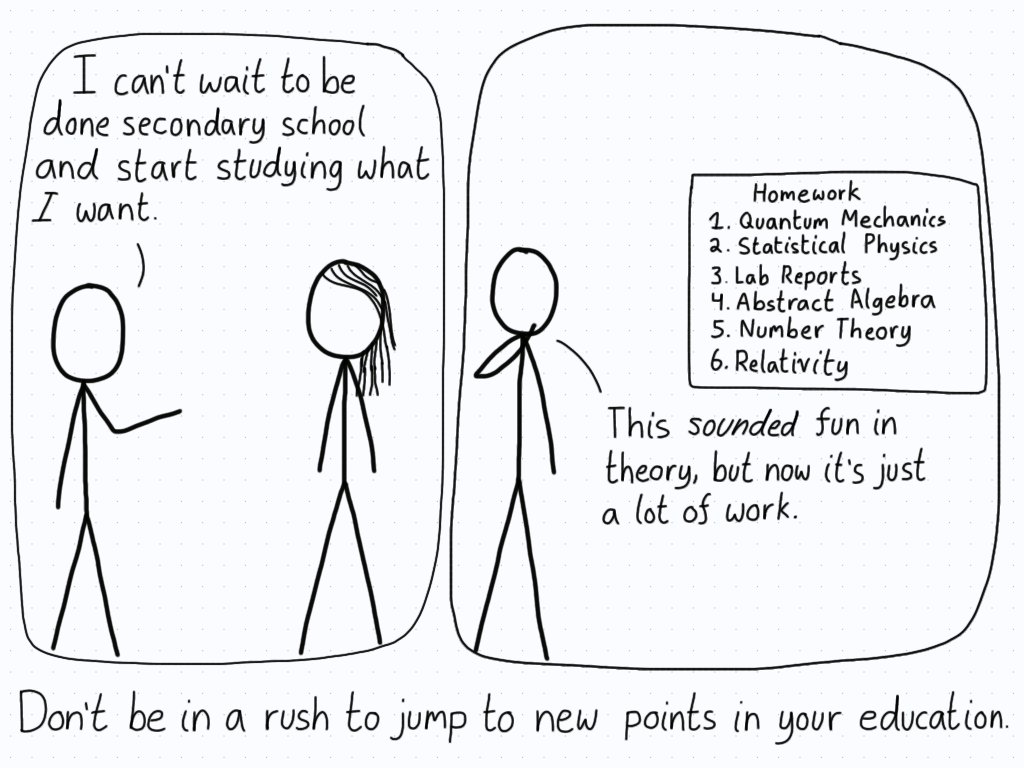 I can't wait to be
done secondary school
and start studying what
I want.
Homework
1. Quantum Mechanics
2. Statistical Physics
3. Lab Reports
4. Abstract Algebra
5. Number Theory
6. Relativity
This sounded fun in
theory, but now it's just
a lot of work.
Don't be in a rush to jump to new points in your education.